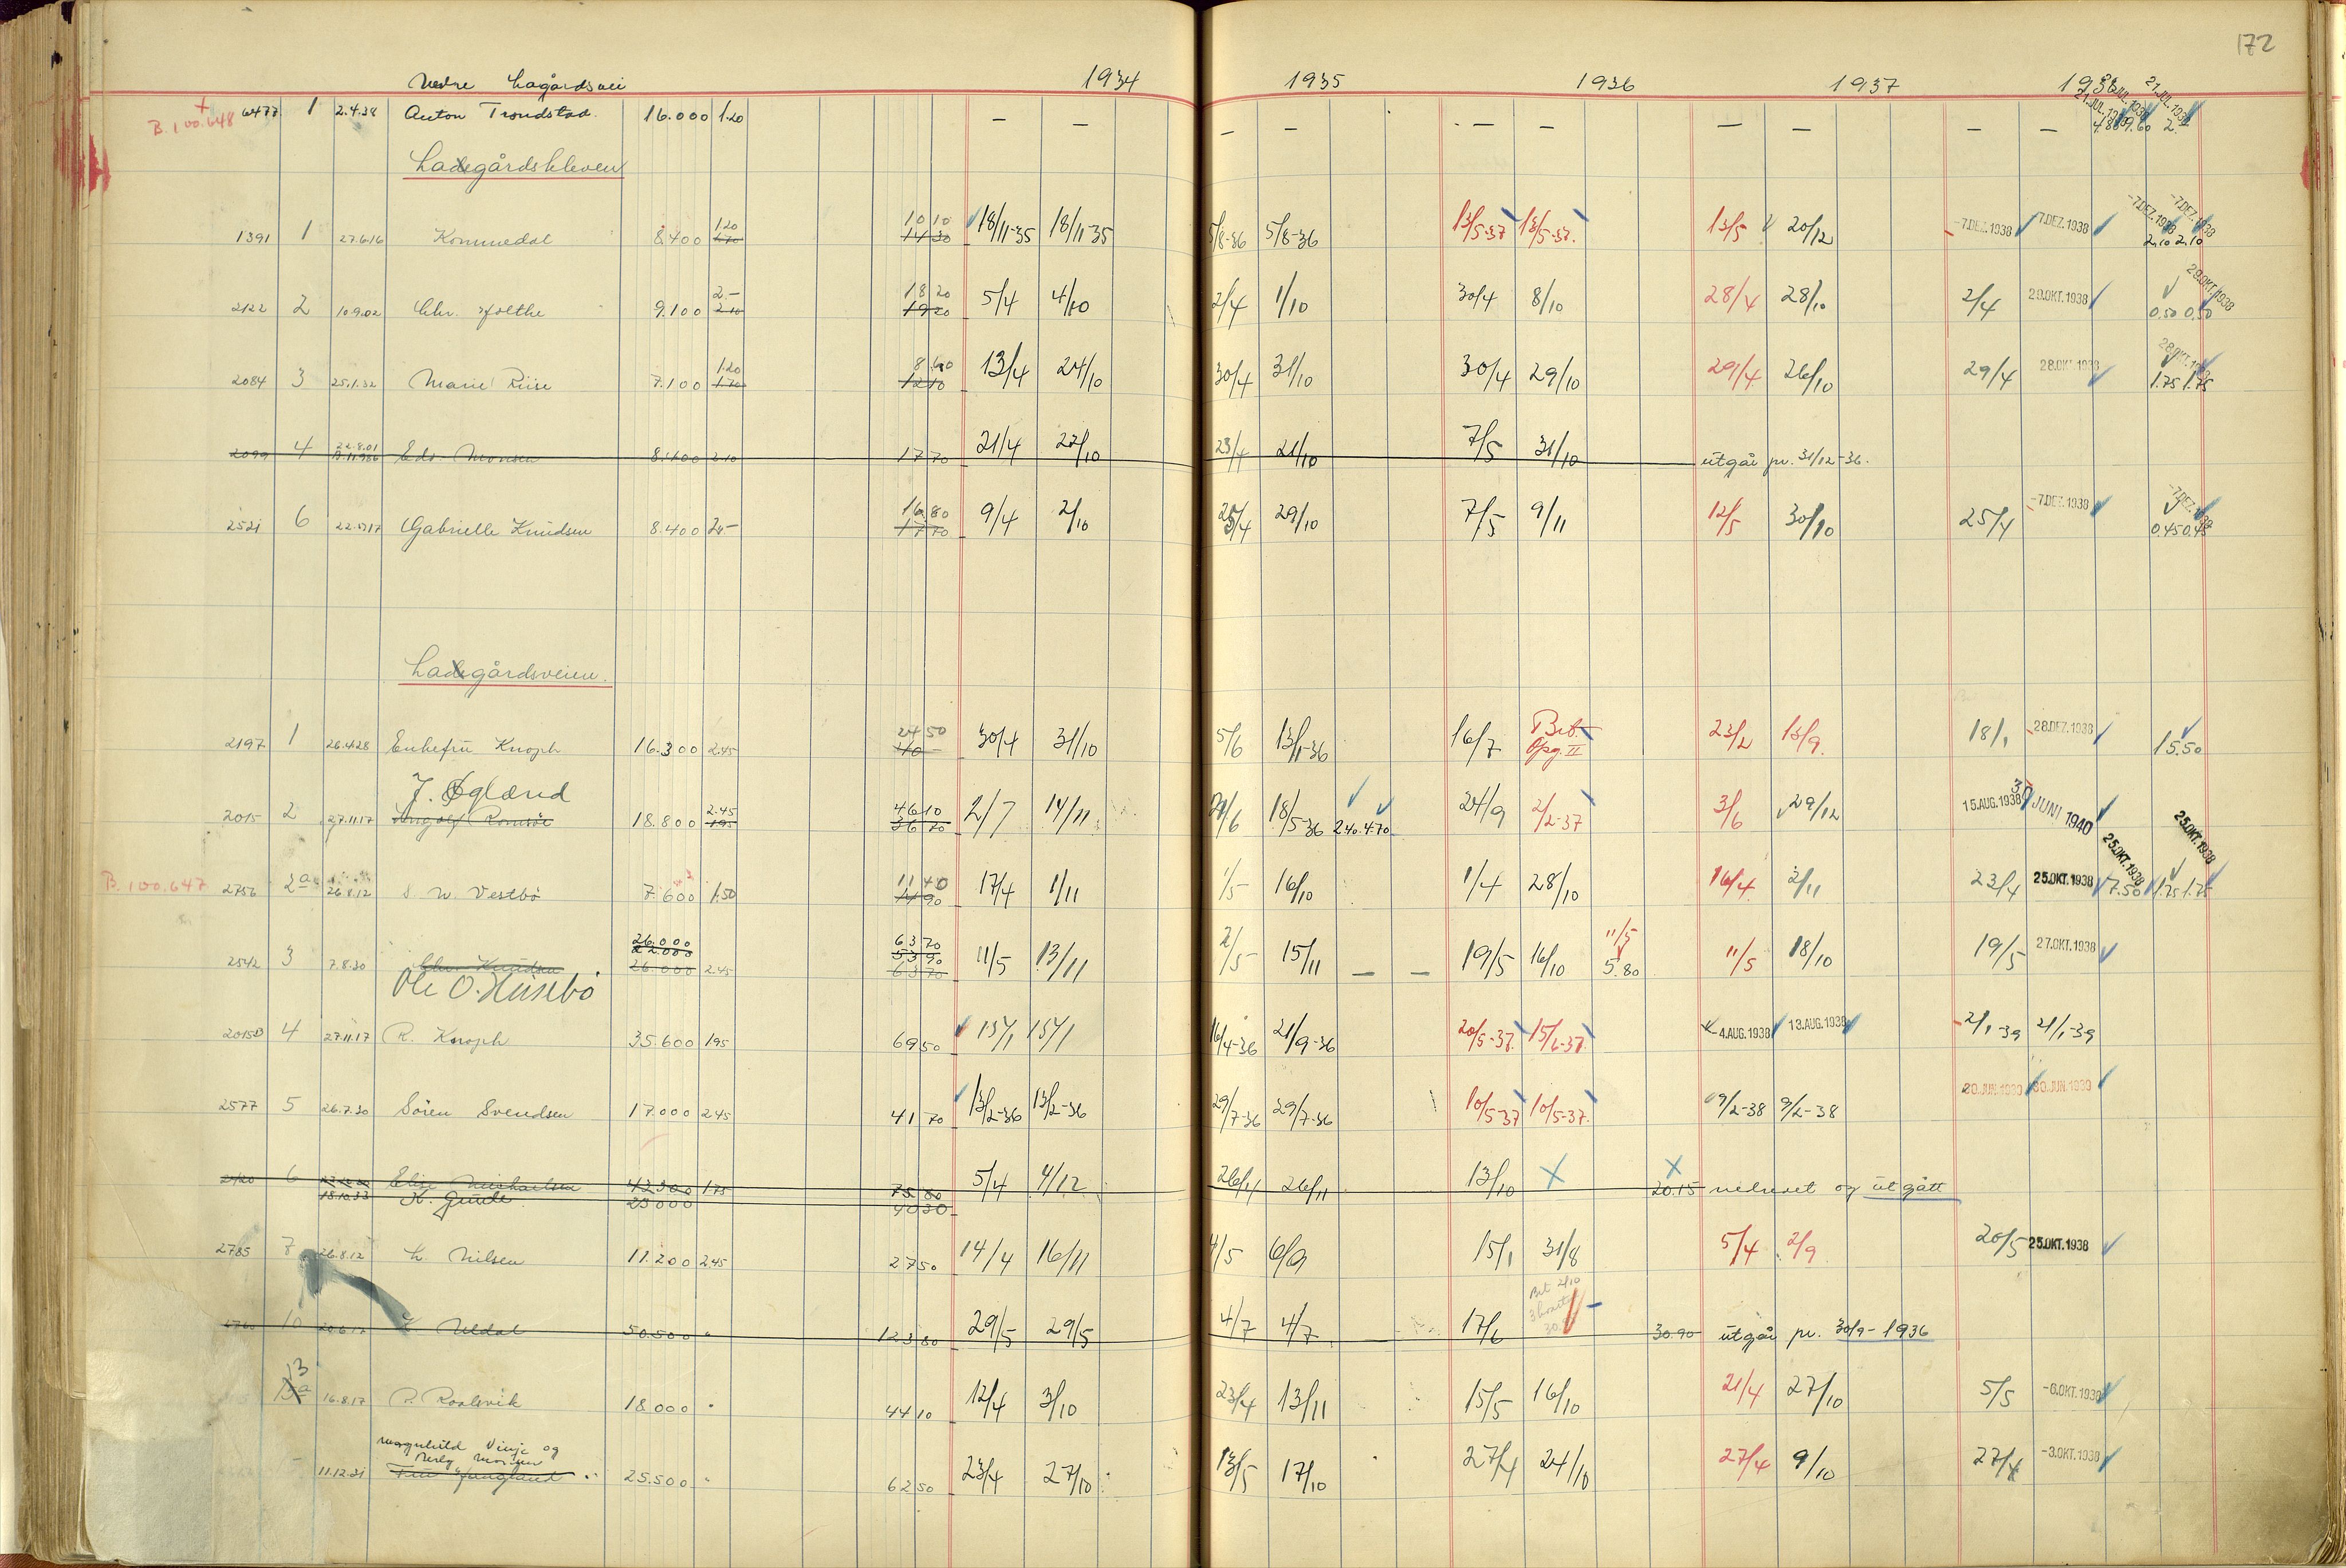 172
1934 1935 1936 1937
B.100.648 6477 1 2.4.38 Anton Trondstad. 16.000 1.20 — — — — — — — — — — 4.80 9.60 2.
Ladegårdskleven
1391 1 27.6.16 Kommedal 8.400 1.20 10 10 18/11-35 18/11-35 5/8-36 5/8-36 13/5-37 13/5-37. 13/5 20/12 -7.DEZ.1938 -7.DEZ.1938 -7.DEZ.1938 -7.DEZ.1938 2,10 2,10
2122 2 10.9.02 Chr. 9.100 2.- 2.10 18 20 19 20 5/4 4/10 2/4 1/10 30/4 8/10 28/4 28/10 2/4 29.OKT.1938 29.OKT.1938 0.50 0.50
2084 3 25.1.32 Marie Riise 7.100 1.20 1.70 8 60 12 10 13/4 24/10 30/4 31/10 30/4 29/10 29/4 26/10 29/4 28.OKT.1938 1.75 1.75
2099 4 22.8.01 Edv. Monsen 8.400 2.10 17 70 21/4 22/10 23/4 21/10 7/5 31/10 utgår pr. 31/12-36.
2521 6 Gabrielle Knudsen 8.400 16 80 17 70 9/4 2/10 25/4 29/10 7/5 9/11 12/5 30/10 25/4 -7.DEZ.1938 -7.DEZ.1938 0.45 0.45
Ladegårdsveien.
2197 1 26.4.28 Enkefru Knoph 16.300 2.45 24 50 40 - 30/4 31/10 5/6 13/1-36 16/7 Bet. Opg. II 23/2 13/9. 18/1 28.DEZ.1938 15.50
J. Øglænd
2015 2 27.11.17 18.800 2.45 1.95 46 10 36 70 2/7 14/11 21/6 18/5-36 2.40. 4.70 24/9 2/2-37 3/6 29/12 15.AUG.1938 30 JUNI 1940
B.100.647 2756 2a 26.8.12 S. W. Vestbø 7.600 1.50 11 40 14 90 17/4 1/11 1/5 16/10 1/4 28/10 16/4 2/11 23/4 25.OKT.1938 25.OKT.1938 25.OKT.1938 7.50 1.75 1.75
26.000
22.000
2542 3 7.8.30 Chr. Knudsen 26.000 2.45 63 70 53 90 63 70 11/5 13/11 2/5 15/11 — — 19/5 16/10 11/5 5.80 11/5 18/10 19/5 27.OKT.1938
Ole O. Husebø
4 27.11.17 R. Knoph 35.600 1.95 69 50 15/1 15/1 16/4-36 21/9-36 20/5-37. 15/6-37 -4.AUG.1938 13.AUG.1938 21/1-39 21/1-39
2577 5 26.7.30 Sören Svendsen 17.000 2.45 41 70 13/2-36 13/2-36 29/7-36 29/7-36 10/5-37 10/5-37. 9/2-38 9/2-38 30.JUN.1939 30.JUN.1939
6 Elise Michaelsen 43.300 1.75 75 80 5/4 4/12 26/11 26/11 13/10 X X 20.15 nedrevet og utgått
18.10.33 K. Gude 23000 40 30
2785 7 26.8.12 K. Nilsen 11.200 2.45 27 50 14/4 16/11 4/5 6/9 15/1 31/8 5/4 2/9 20/5 25.OKT.1938
10 Uldal 50.500 " 123 80 29/5 29/5 4/7 4/7 17/6 30.90 utgår pr. 30/9-1936
13
16.8.17 P. Roalsvik 18.000 " 44 10 12/4 3/10 23/4 13/11 15/5 16/10 21/4 27/10 5/5 -6.OKT.1938
Magnhild Vinje og
11.12.21 25.500 " 62 50 23/4 27/10 13/5 17/10 27/4 24/10 27/4 9/10 27/4 -3.OKT.1938